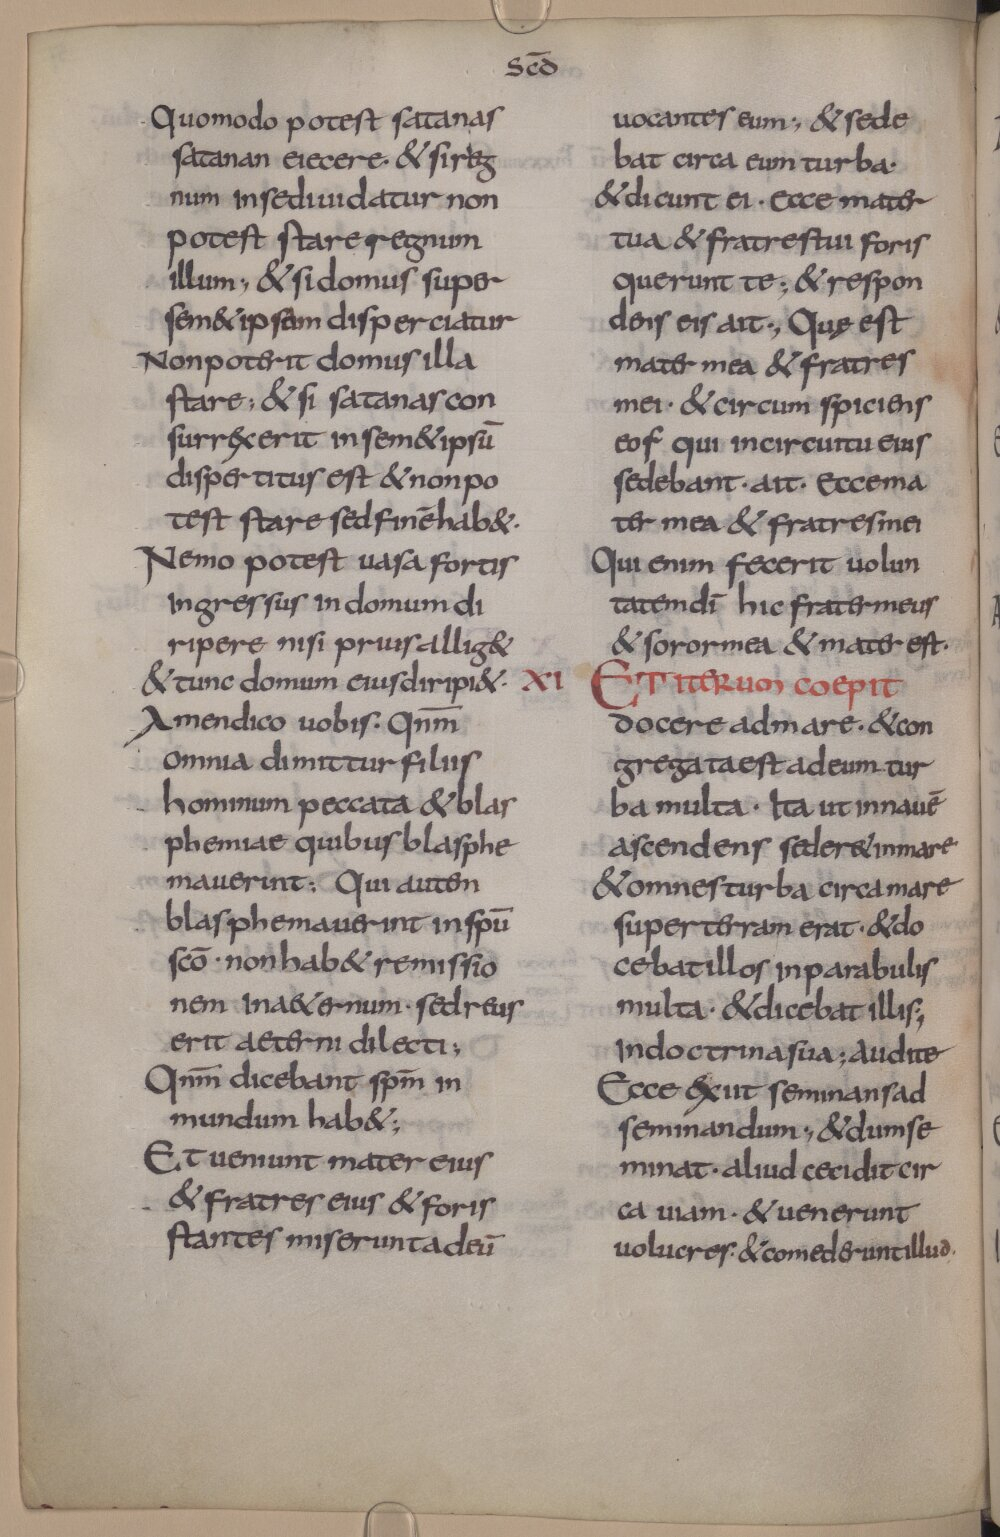 Scd̄
Quomodo potest satanas
satanan eiecere· & si reg
num in se diuidatur non
potest stare regnum
illum; & si domus super
sem&ipsam disperciatur
Non poterit domus illa
stare; & si satanas con
surrexerit in sem&ipsū
dispertitus est & non po
test stare sed finē hab&·
Nemo potest uasa fortis
ingressus in domum di
ripere nisi prius allig&
& tunc domum eius diripi&·
Amen dico uobis· Qnm̄
omnia dimittur filiis
hominum peccata & blas
phemiae quibus blasphe
mauerint; Qui auten
blasphemauerint in spū
scō· non hab& remissio
nem in a&ernum· sed reus
erit aeterni dilecti;
Qnm̄ dicebant spm̄ in
mundum hab&;
Et ueniunt mater eius
& fratres eius & foris
stantes miserunt ad eū
uocantes eum; & sede
bat circa eum turba·
& dicunt ei· Ecce mater
tua & fratres tui foris
querunt te; & respon
dens eis ait; Quę est
mater mea & fratres
mei· & circum spiciens
eos qui in circuitu eius
sedebant· ait· Ecce ma
ter mea & fratres mei
Qui enim fecerit uolun
tatem dī hic frater meus
& soror mea & mater est·
XI Et iterum coepit
docere ad mare· & con
gregata est ad eum tur
ba multa· Ita ut in nauē
ascendens seder& in mare
& omnes turba circa mare
super terram erat· & do
cebat illos in parabulis
multa· & dicebat illis;
in doctrina sua; Audite
Ecce exiit seminans ad
seminandum; & dum se
minat· aliud cecidit cir
ca uiam· & uenerunt
uolucres· & comederunt illud·